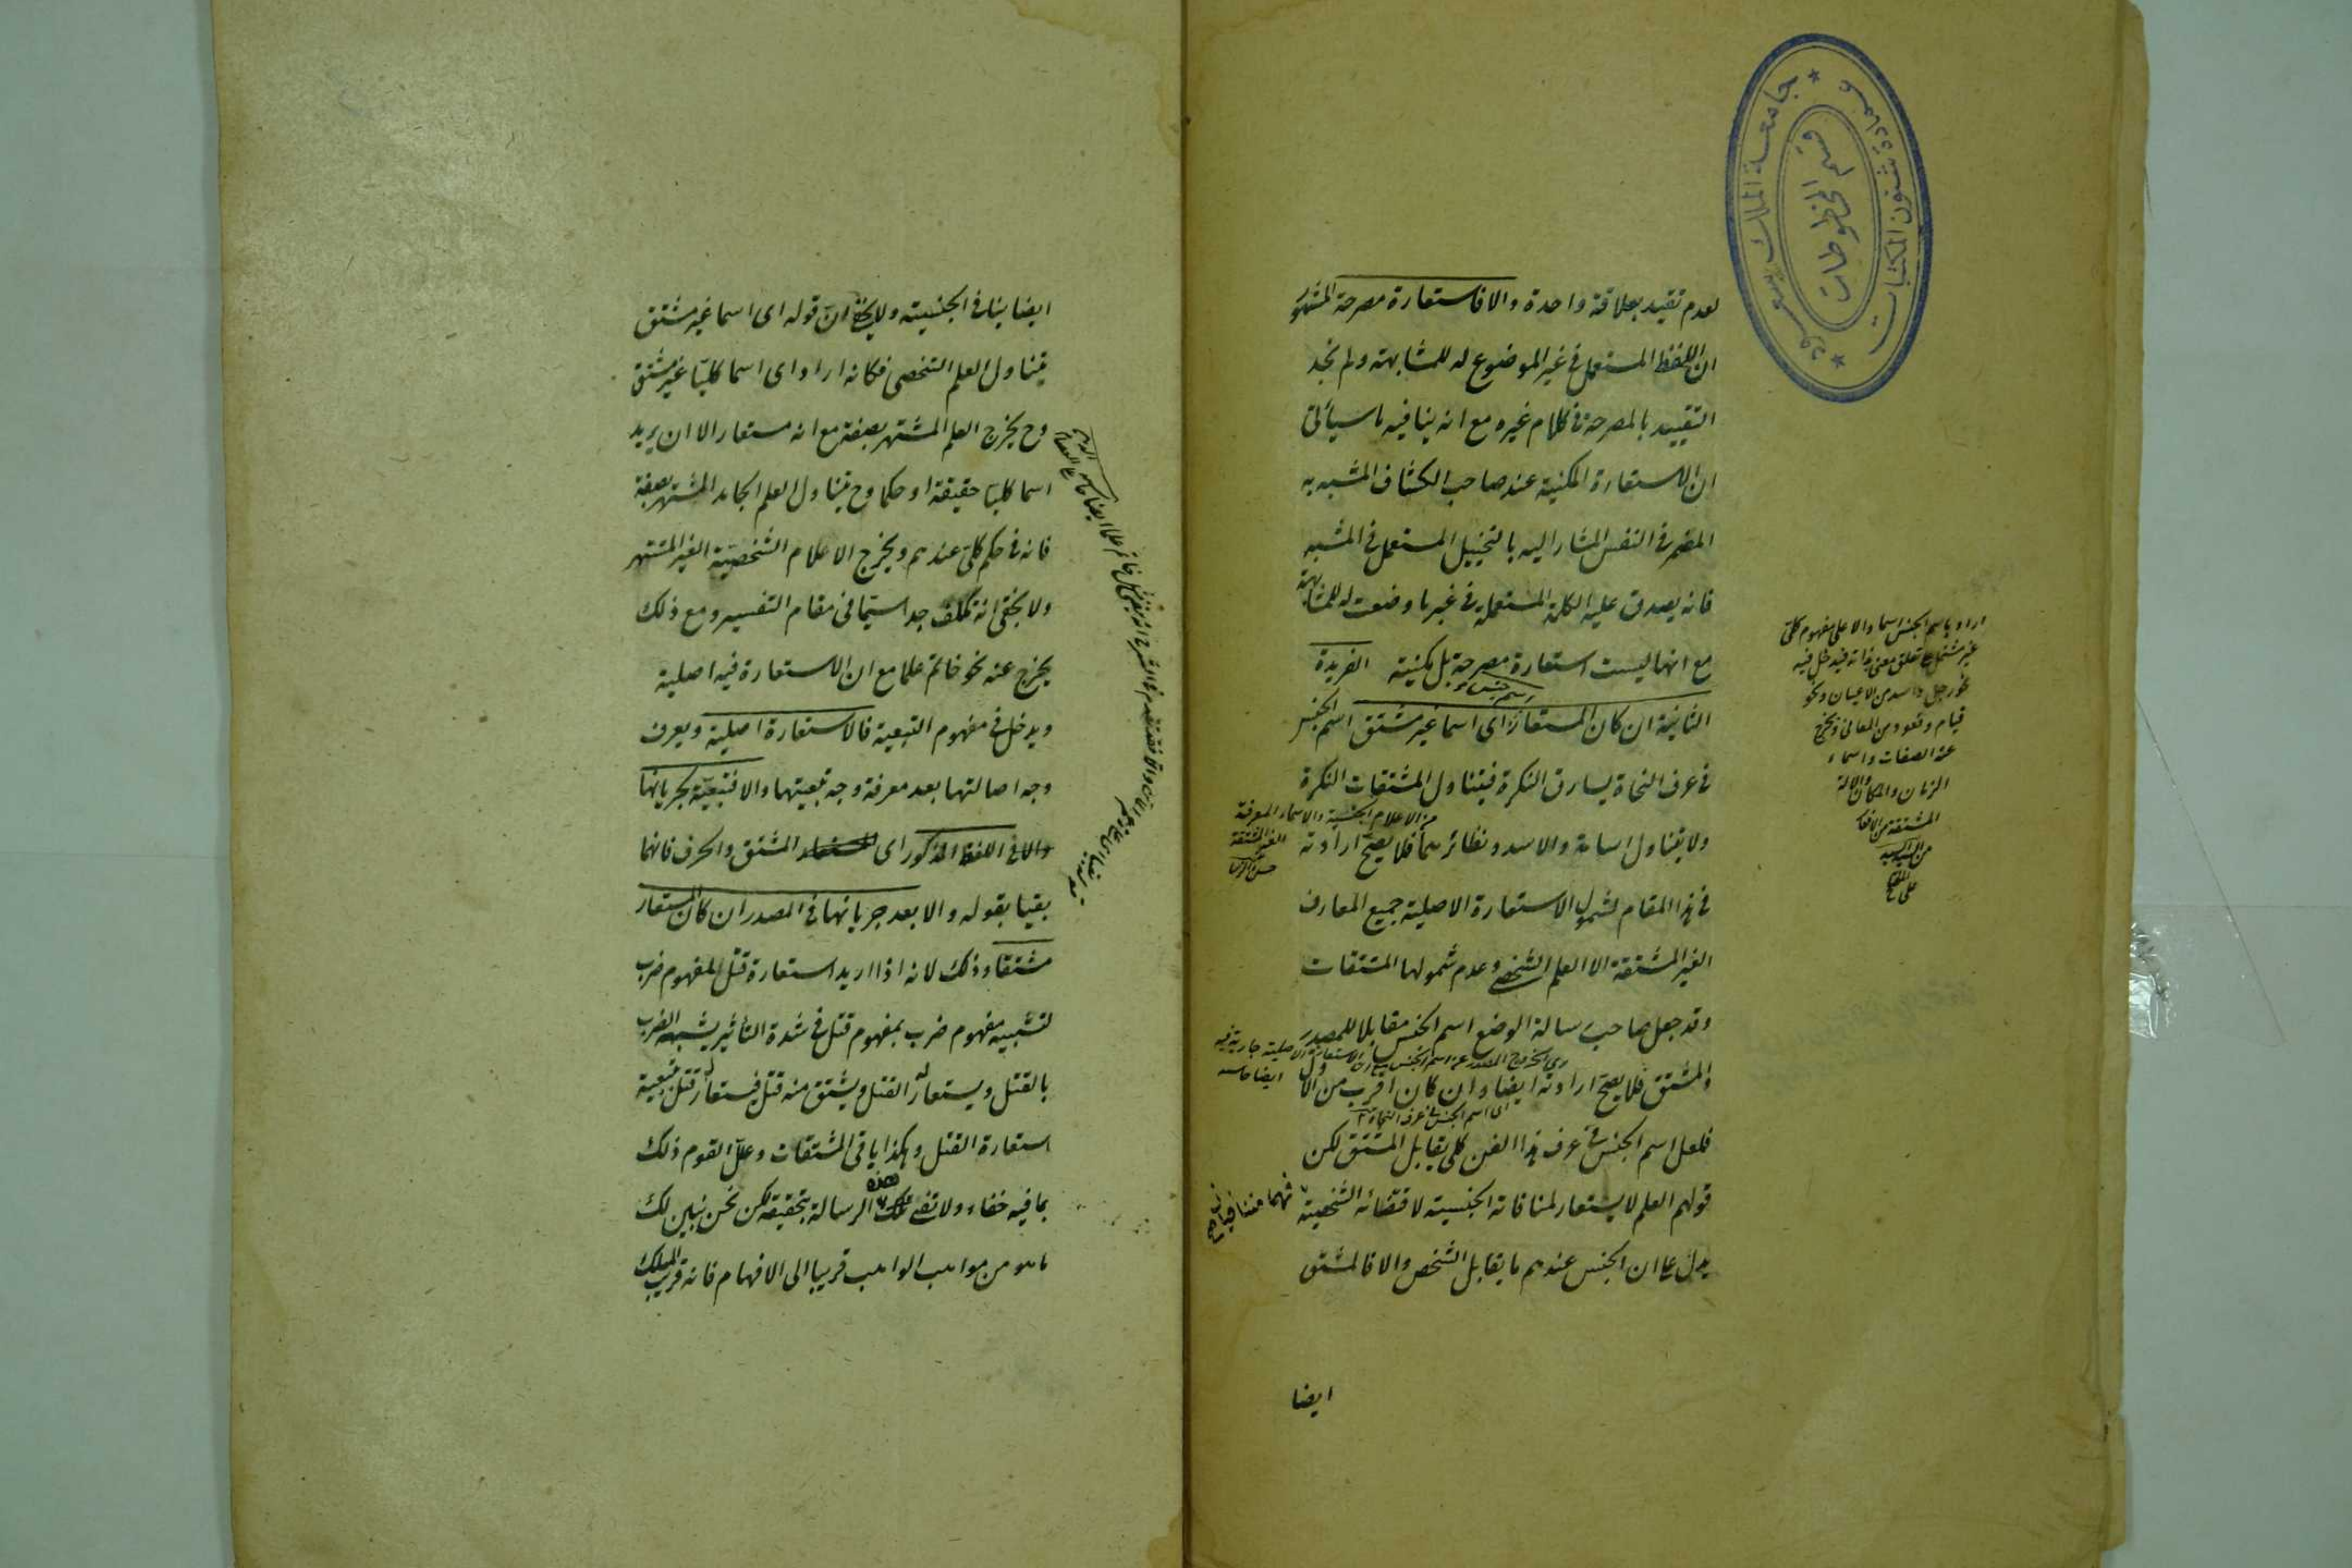 لعدم تقيد بعلاقة واحدة والا فاستعارة مصرحة المشهور
ان اللفظ المستعمل في غير الموضوع له للمشابهة ولم نجد
التقييد بالمصرحة في كلام غيره مع انه ينافيه ما سيأتى
ان الاستعارة المكنية عند صاحب الكشاف المشبه به
المضمر في النفس المشار اليه بالتخييل المستعمل في المشبه
فانه يصدق عليه الكلمة المستعملة في غير ما وضعت له للمشابهة
مع انها ليست استعارة مصرحة بل مكنية الفريدة
الثانية ان كان المستعار اى اسما غير مشتق اسم الجنس
في عرف النحاة يساوق النكرة فيتناول المشتقات النكرة
ولا يتناول اسامة والاسد ونظائرهما فلا يصح ارادته
في هذا المقام لشمول الاستعارة الاصلية جميع المعارف
الغير المشتقة الا العلم الشخصي وعدم شمولها المشتقات
وقد جعل صاحب رسالة الوضع اسم الجنس مقابلا للمصدر
والمشتق فلا يصح ارادته ايضا وان كان اقرب من الاول
فلعل اسم الجنس في عرف هذا الفن كلى يقابل المشتق لكن
قولهم العلم لا يستعار لمنافاته الجنسية لاقتضائه الشخصية
يدل على ان الجنس عندهم ما يقابل الشخص والا فالمشتق
ايضا
اراد باسم الجنس اسما دالا على مفهوم كلى
غير مشتمل على تعلق معنى بذاته فيدخل فيه
نحو رجل واسد من الاعيان ونحو
قيام وقعود من المعانى ويخرج
عنه الصفات واسماء
الزمان والمكان والالة
المشتقة من الافعال
من الاعلام الجنسية والاسماء المعرفة
الغير المشتقة
اى اسم الجنس في عرف النحاة
فهما متنافيان
جامعة الملك سعود
عمادة شئون المكتبات
قسم المخطوطات
ايضا ينافى الجنسية ولا يخفى ان قوله اى اسما غير مشتق
يتناول العلم الشخصى فكانه اراد اى اسما كليا غير مشتق
وح يخرج العلم المشتهر بصفة مع انه مستعار الا ان يريد
اسما كليا حقيقة او حكما وح يتناول العلم الجامد المشتهر بصفة
فانه في حكم كلى عندهم ويخرج الاعلام الشخصية الغير المشتهر
ولا يخفى انه تكلف جدا سيما في مقام التفسير ومع ذلك
يخرج عنه نحو خاتم علما مع ان الاستعارة فيه اصلية
ويدخل في مفهوم التبعية فالاستعارة اصلية ويعرف
وجه اصالتها بعد معرفة وجه تبعيتها والا فتبعية لجريانها
والا في اللفظ المذكور اى المشتق والحرف فانهما
بقيا بقوله والا بعد جريانها في المصدر ان كان المستعار
مشتقا وذلك لانه اذا اريد استعارة قتل لمفهوم ضرب
لتشبيه مفهوم ضرب بمفهوم قتل في شدة التأثير يشبه الضرب
بالقتل ويستعار له القتل ويشتق منه قتل فيستعار قتل بتبعية
استعارة القتل وهكذا باقى المشتقات وعلل القوم ذلك
بما فيه خفاء ولا تفى هذه الرسالة بتحقيقه لكن نحن نبين لك
ما هو من مواهب الواهب قريبا الى الافهام فانه قريب المسلك